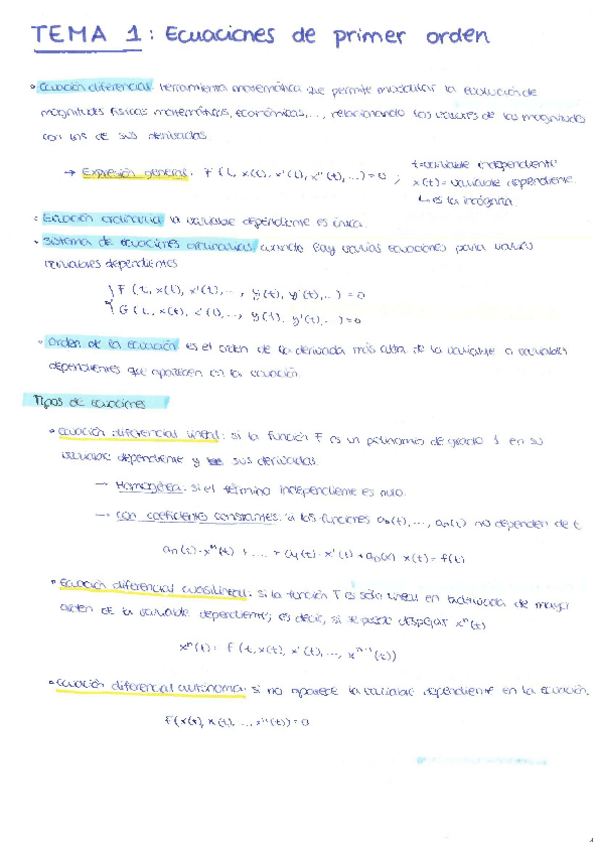 TEMA 1: Ecuaciones de primer orden
• Ecuación diferencial: herramienta matemática que permite modelizar la evolución de
magnitudes físicas, matemáticas, económicas,..., relacionando los valores de las magnitudes
con los de sus derivadas.
→ Expresión general: F(t, x(t), x'(t), x''(t), ...) = 0 ; t=variable independiente
x(t)= variable dependiente.
↳ es la incógnita.
• Ecuación ordinaria: la variable dependiente es única.
• Sistema de ecuaciones ordinarias: cuando hay varias ecuaciones para varias
variables dependientes
F(t, x(t), x'(t), .., y(t), y'(t), ..) = 0
G(t, x(t), x'(t), .., y(t), y'(t), ..) = 0
• Orden de la ecuación: es el orden de la derivada más alta de la variable o variables
dependientes que aparecen en la ecuación.
Tipos de ecuaciones
• Ecuación diferencial lineal: si la función F es un polinomio de grado 1 en su
variable dependiente y sus derivadas.
— Homogénea: si el término independiente es nulo.
— Con coeficientes constantes: si las funciones a₀(t), ..., aₙ(t) no dependen de t
aₙ(t)·xⁿ(t) + ... + a₁(t)·x'(t) + a₀(t) x(t) = f(t)
• Ecuación diferencial cuasilineal: si la función F es sólo lineal en la derivada de mayor
orden de la variable dependiente; es decir, si se puede despejar xⁿ(t)
xⁿ(t) = f(t, x(t), x'(t), ..., xⁿ⁻¹(t))
• Ecuación diferencial autónoma: si no aparece la variable dependiente en la ecuación.
F(x(t), x'(t), ..., xⁿ(t)) = 0